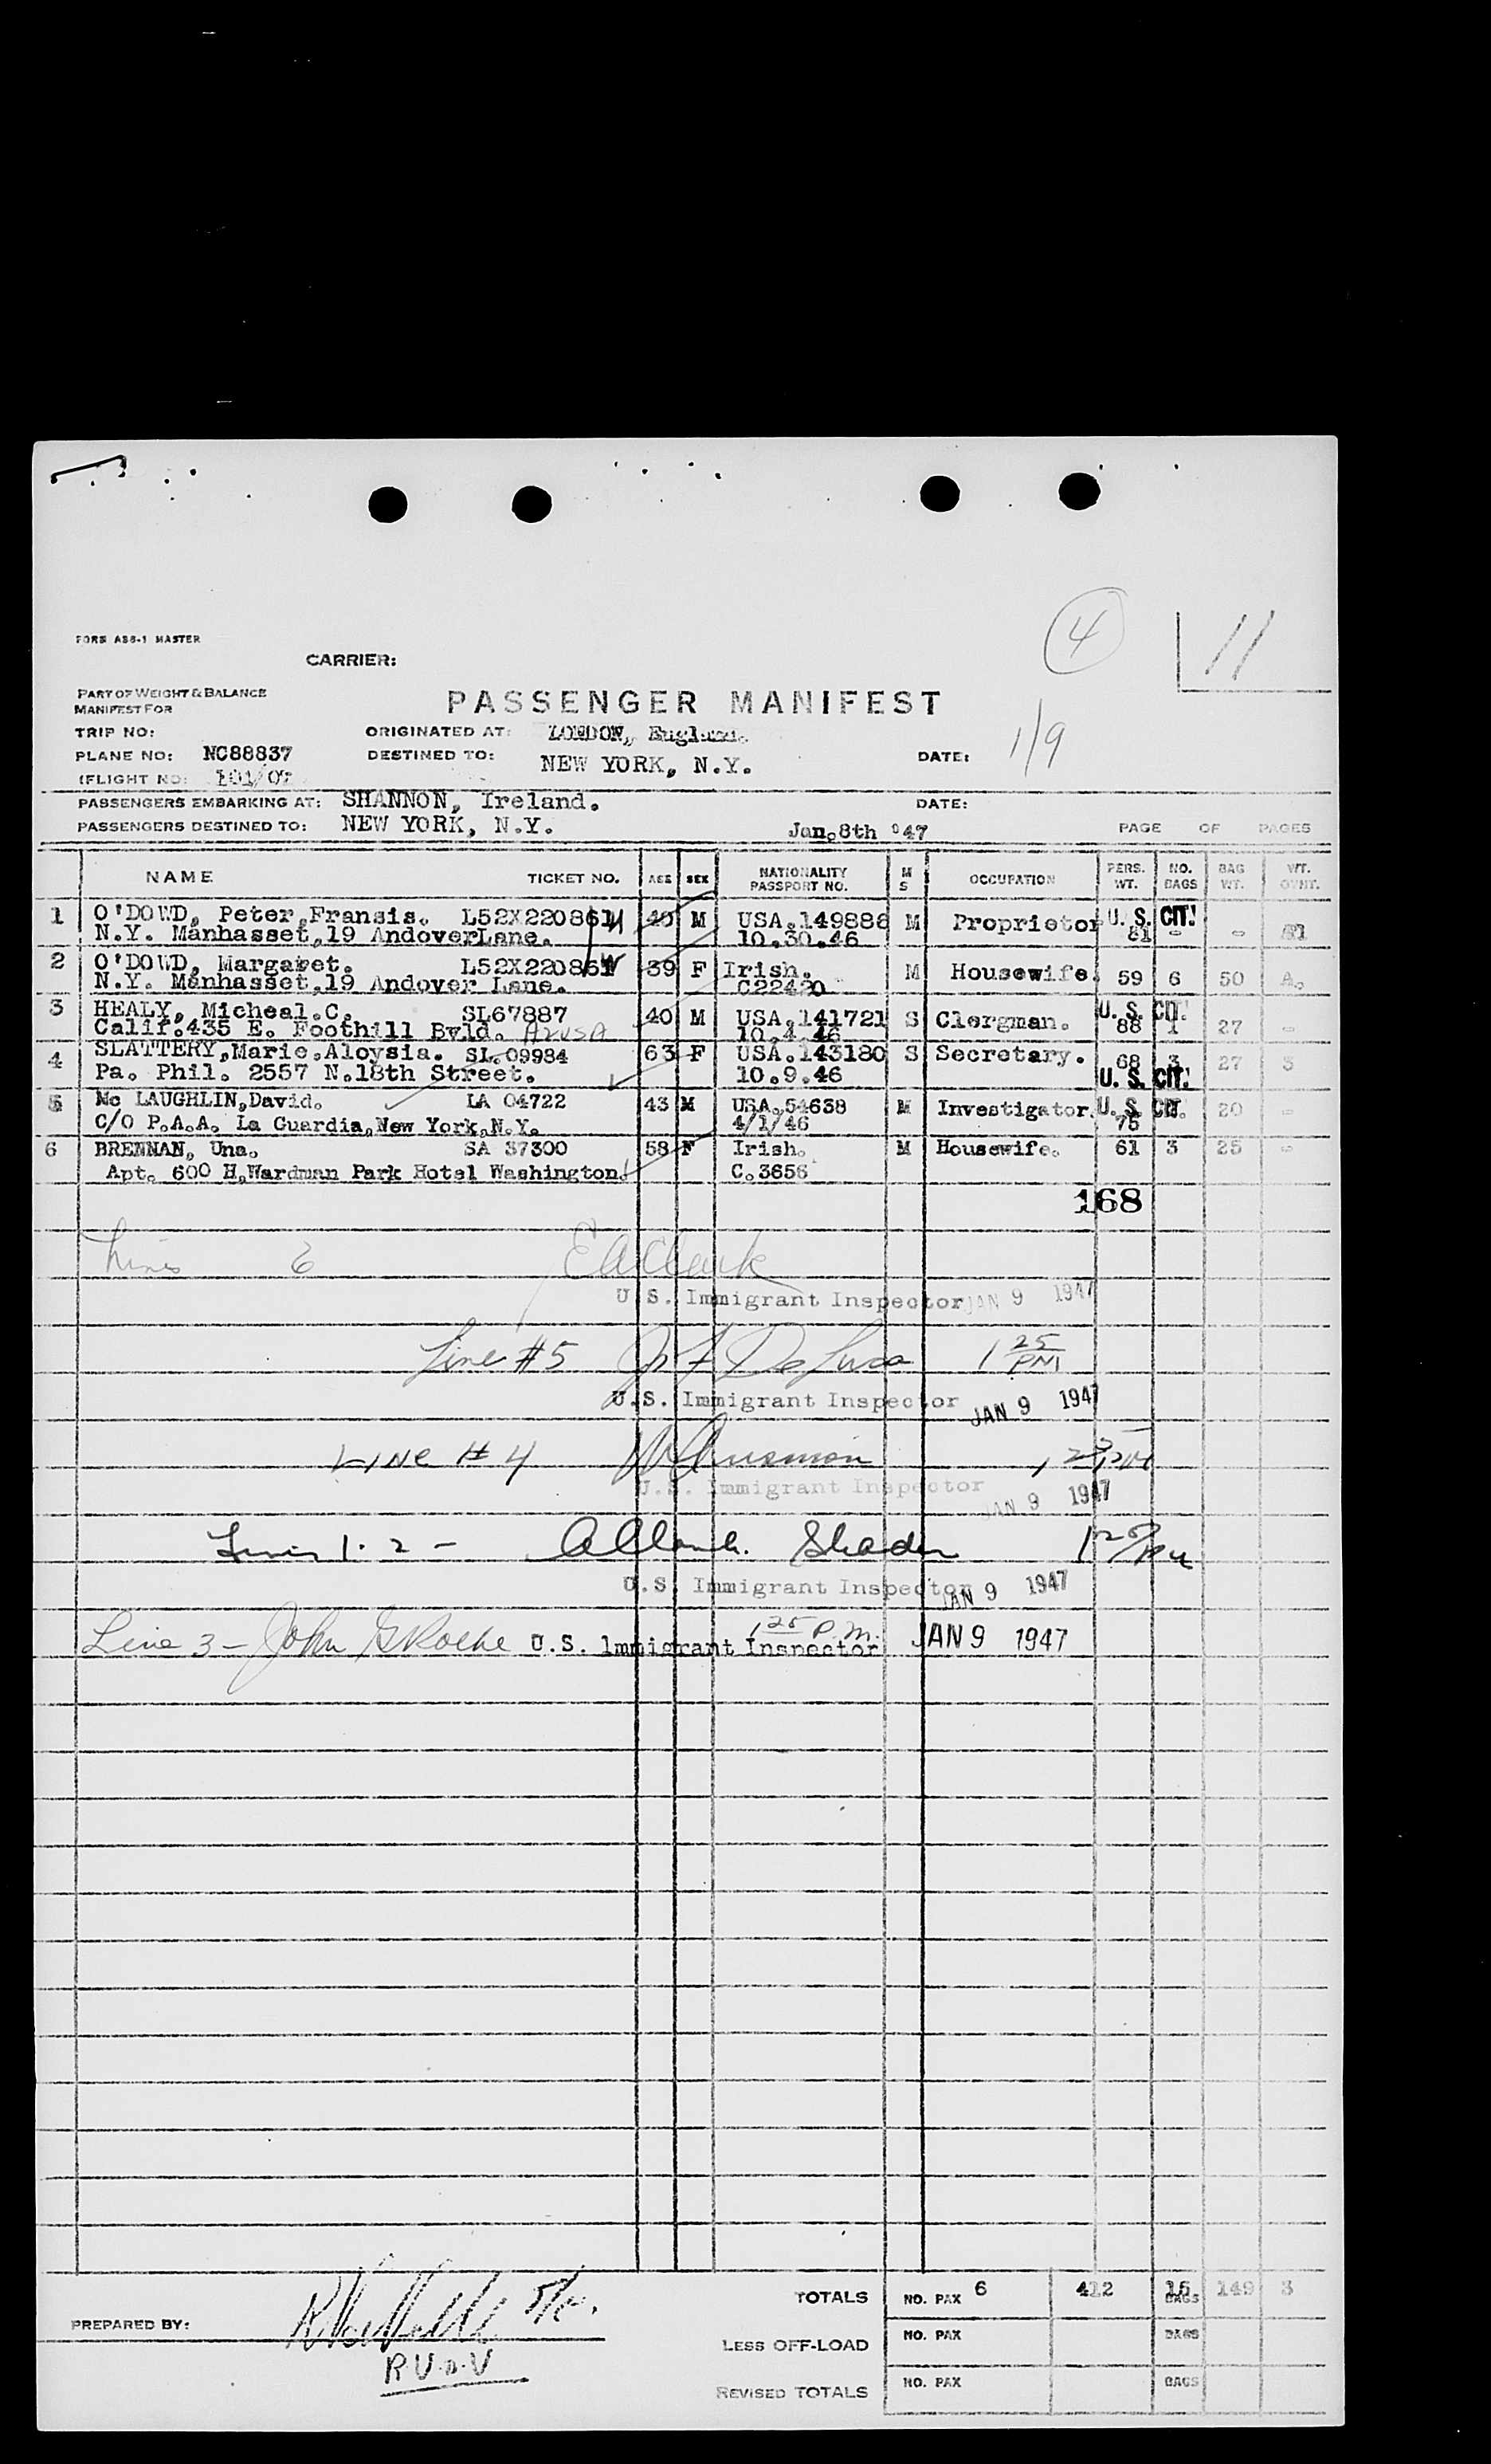 4
11
FORM AS6-1 MASTER
CARRIER:
PART OF WEIGHT & BALANCE
MANIFEST FOR
PASSENGER MANIFEST
TRIP NO:
ORIGINATED AT: LONDON, England.
1/9
PLANE NO: NC88837
DESTINED TO: NEW YORK, N.Y.
DATE:
(FLIGHT NO: 101/07
PASSENGERS EMBARKING AT: SHANNON, Ireland.
DATE:
PASSENGERS DESTINED TO: NEW YORK, N.Y.
Jan.8th '47
PAGE OF PAGES
NAME TICKET NO. AGE SEX NATIONALITY PASSPORT NO. M S OCCUPATION PERS. WT. NO. BAGS BAG WT. WT. OVWT.
1 O'DOWD, Peter,Fransis. L52X220861 40 M USA.149886 M Proprietor U. S. CIT.
N.Y. Manhasset,19 AndoverLane. 10.30.46 81 - -
2 O'DOWD, Margaret. L52X220861 39 F Irish. M Housewife. 59 6 50 A.
N.Y. Manhasset,19 Andover Lane. C22420
3 HEALY, Micheal.C. SL67887 40 M USA.141721 S Clergman. U. S. CIT.
Calif.435 E. Foothill Bvld. AZUSA 10.4.46 88 1 27 -
4 SLATTERY,Marie.Aloysia. SL.09984 63 F USA.143180 S Secretary. 68 3 27 3
Pa. Phil. 2557 N.18th Street. 10.9.46 U. S. CIT.
5 Mc LAUGHLIN,David. LA 04722 43 M USA.54638 M Investigator. U. S. CIT. 20 -
C/O P.A.A. La Guardia,New York,N.Y. 4/1/46 75
6 BRENNAN, Una. SA 37300 58 F Irish. M Housewife. 61 3 25 -
Apt. 600 H,Wardman Park Hotel Washington. C.3656
168
Lines 6 E A Clark
U.S. Immigrant Inspector JAN 9 1947
Line #5 De Luca 1 25 PM
U.S. Immigrant Inspector JAN 9 1947
LINE # 4 1 25 PM
U.S. Immigrant Inspector JAN 9 1947
Lines 1.2 - Shader 1 25 PM
U.S. Immigrant Inspector JAN 9 1947
Line 3 - John G Roche U.S. Immigrant Inspector 1 25 P.M. JAN 9 1947
TOTALS NO. PAX 6 412 15. BAGS 149 3
PREPARED BY:
LESS OFF-LOAD NO. PAX BAGS
REVISED TOTALS NO. PAX BAGS